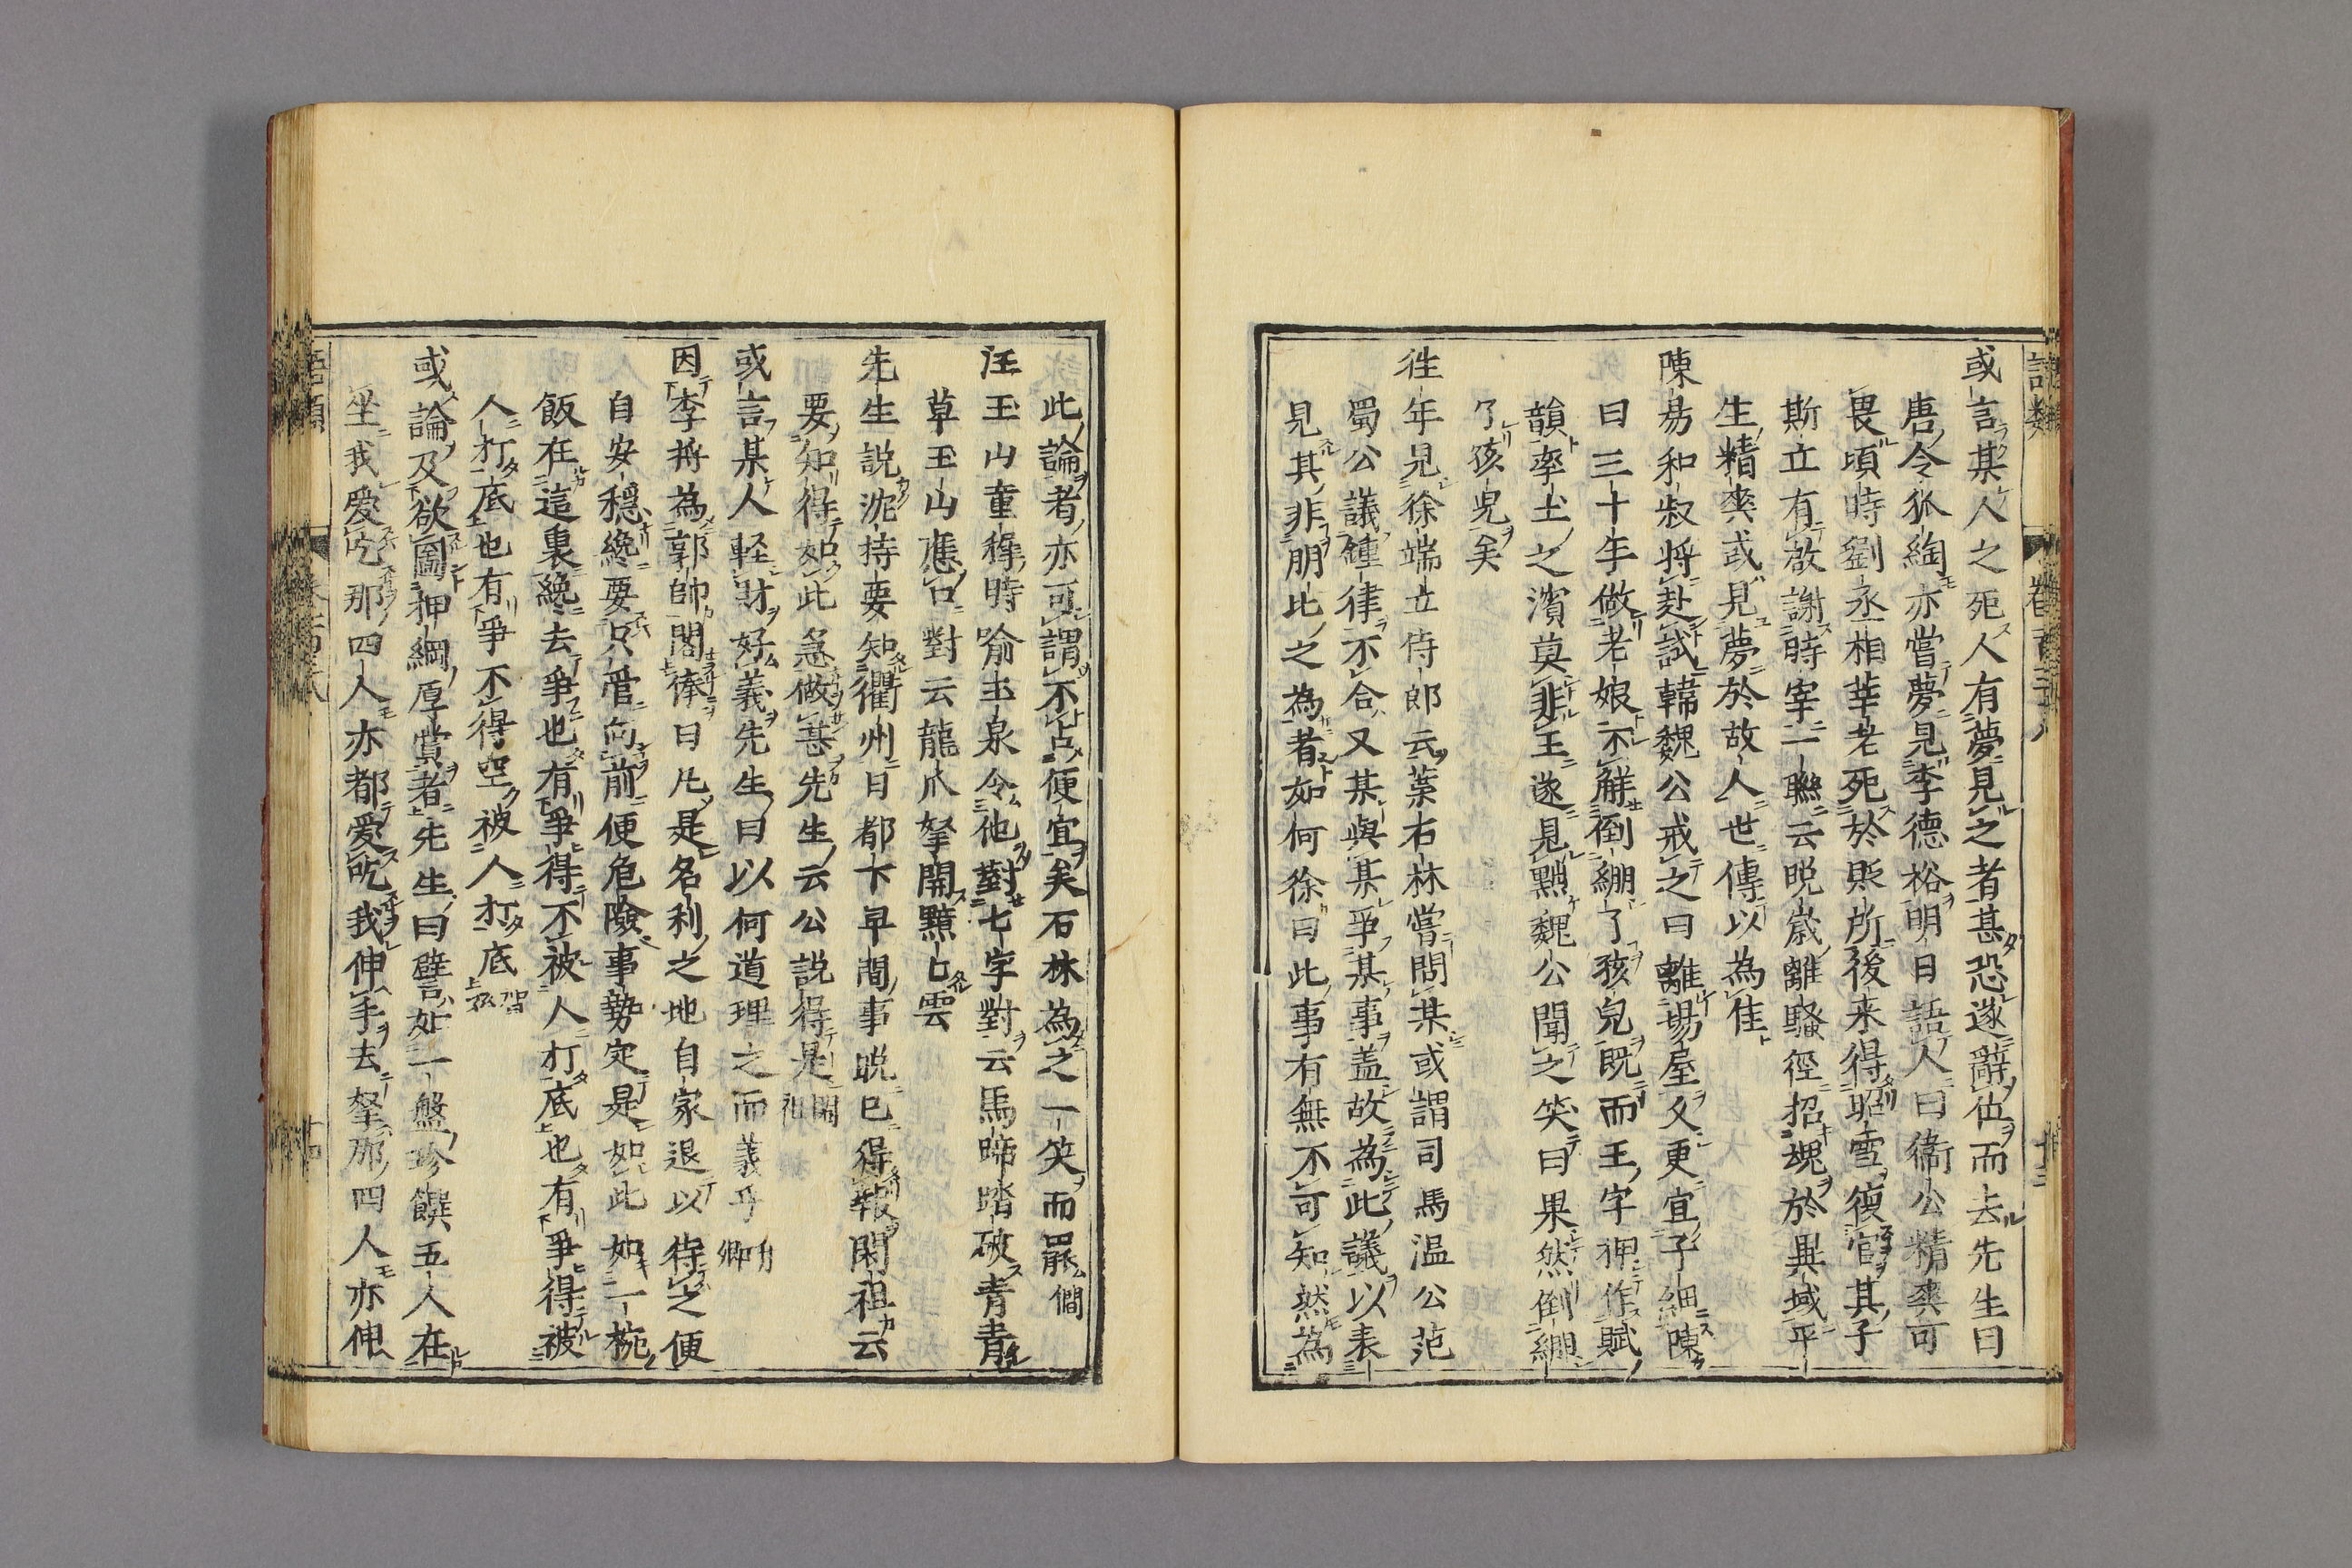 語類 卷百三十八 十三
或言某人之死人有夢見之者甚恐遂辭位而去先生曰
唐令狐綯亦嘗夢見李德裕明日語人曰衞公精爽可
畏頃時劉丞相莘老死於貶所後来得昭雪復官其子
斯立有啟謝時宰一聯云晩歲離騷徑招魂於異域平
生精爽或見夢於故人世傳以為佳
陳昜和叔将赴試韓魏公戒之曰離場屋久更宜子細陳
曰三十年做老娘不觧倒繃了孩兒既而王字押作賦
韻率土之濱莫非王遂見黜魏公聞之笑曰果然倒繃
了孩兒矣
徃年見徐端立侍郎云葉石林嘗問某或謂司馬温公范
蜀公議鍾律不合又某與某爭某事盖故為此議以表
見其非朋比之為者如何徐曰此事有無不可知然為
此論者亦可謂不占便宜矣石林為之一笑而罷 僩
汪玉山童穉時喻玉泉令他對七字對云馬蹄踏破青青
草玉山應口對云龍爪拏開黯黯雲
先生説沈持要知衢州日都下早間事晩已得報閎祖云
要知得如此急做甚先生云公説得是 閎祖
或言某人軽財好義先生曰以何道理之而義乎
因李将為郭帥閣俸曰凡是名利之地自家退以待之便
自安穩纔要只管向前便危險事勢定是如此如一椀
飯在這裏纔去爭也有爭得不被人打底也有爭得被
人打底也有爭不得空被人打底
或論及欲圖押綱厚賞者先生曰譬如一盤珍饌五人在
坐我愛吃那四人亦都愛吃我伸手去拏那四人亦伸
語類